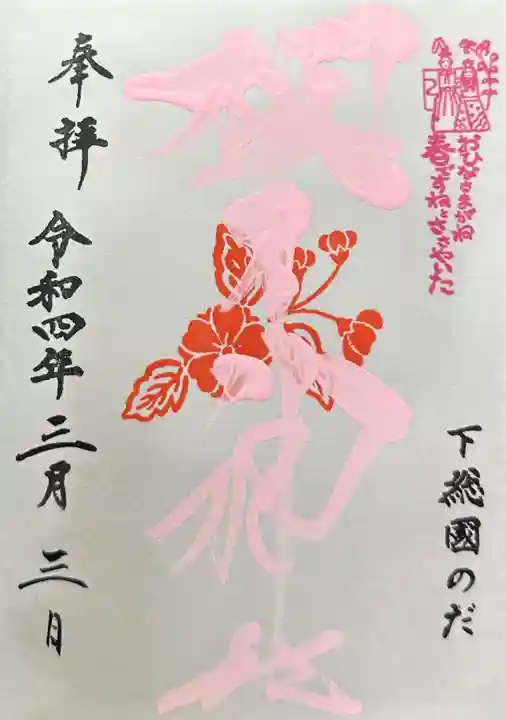 おひなさまがね
春ですねとささやいた
下総國のだ
櫻木神社
奉拝 令和四年三月三日